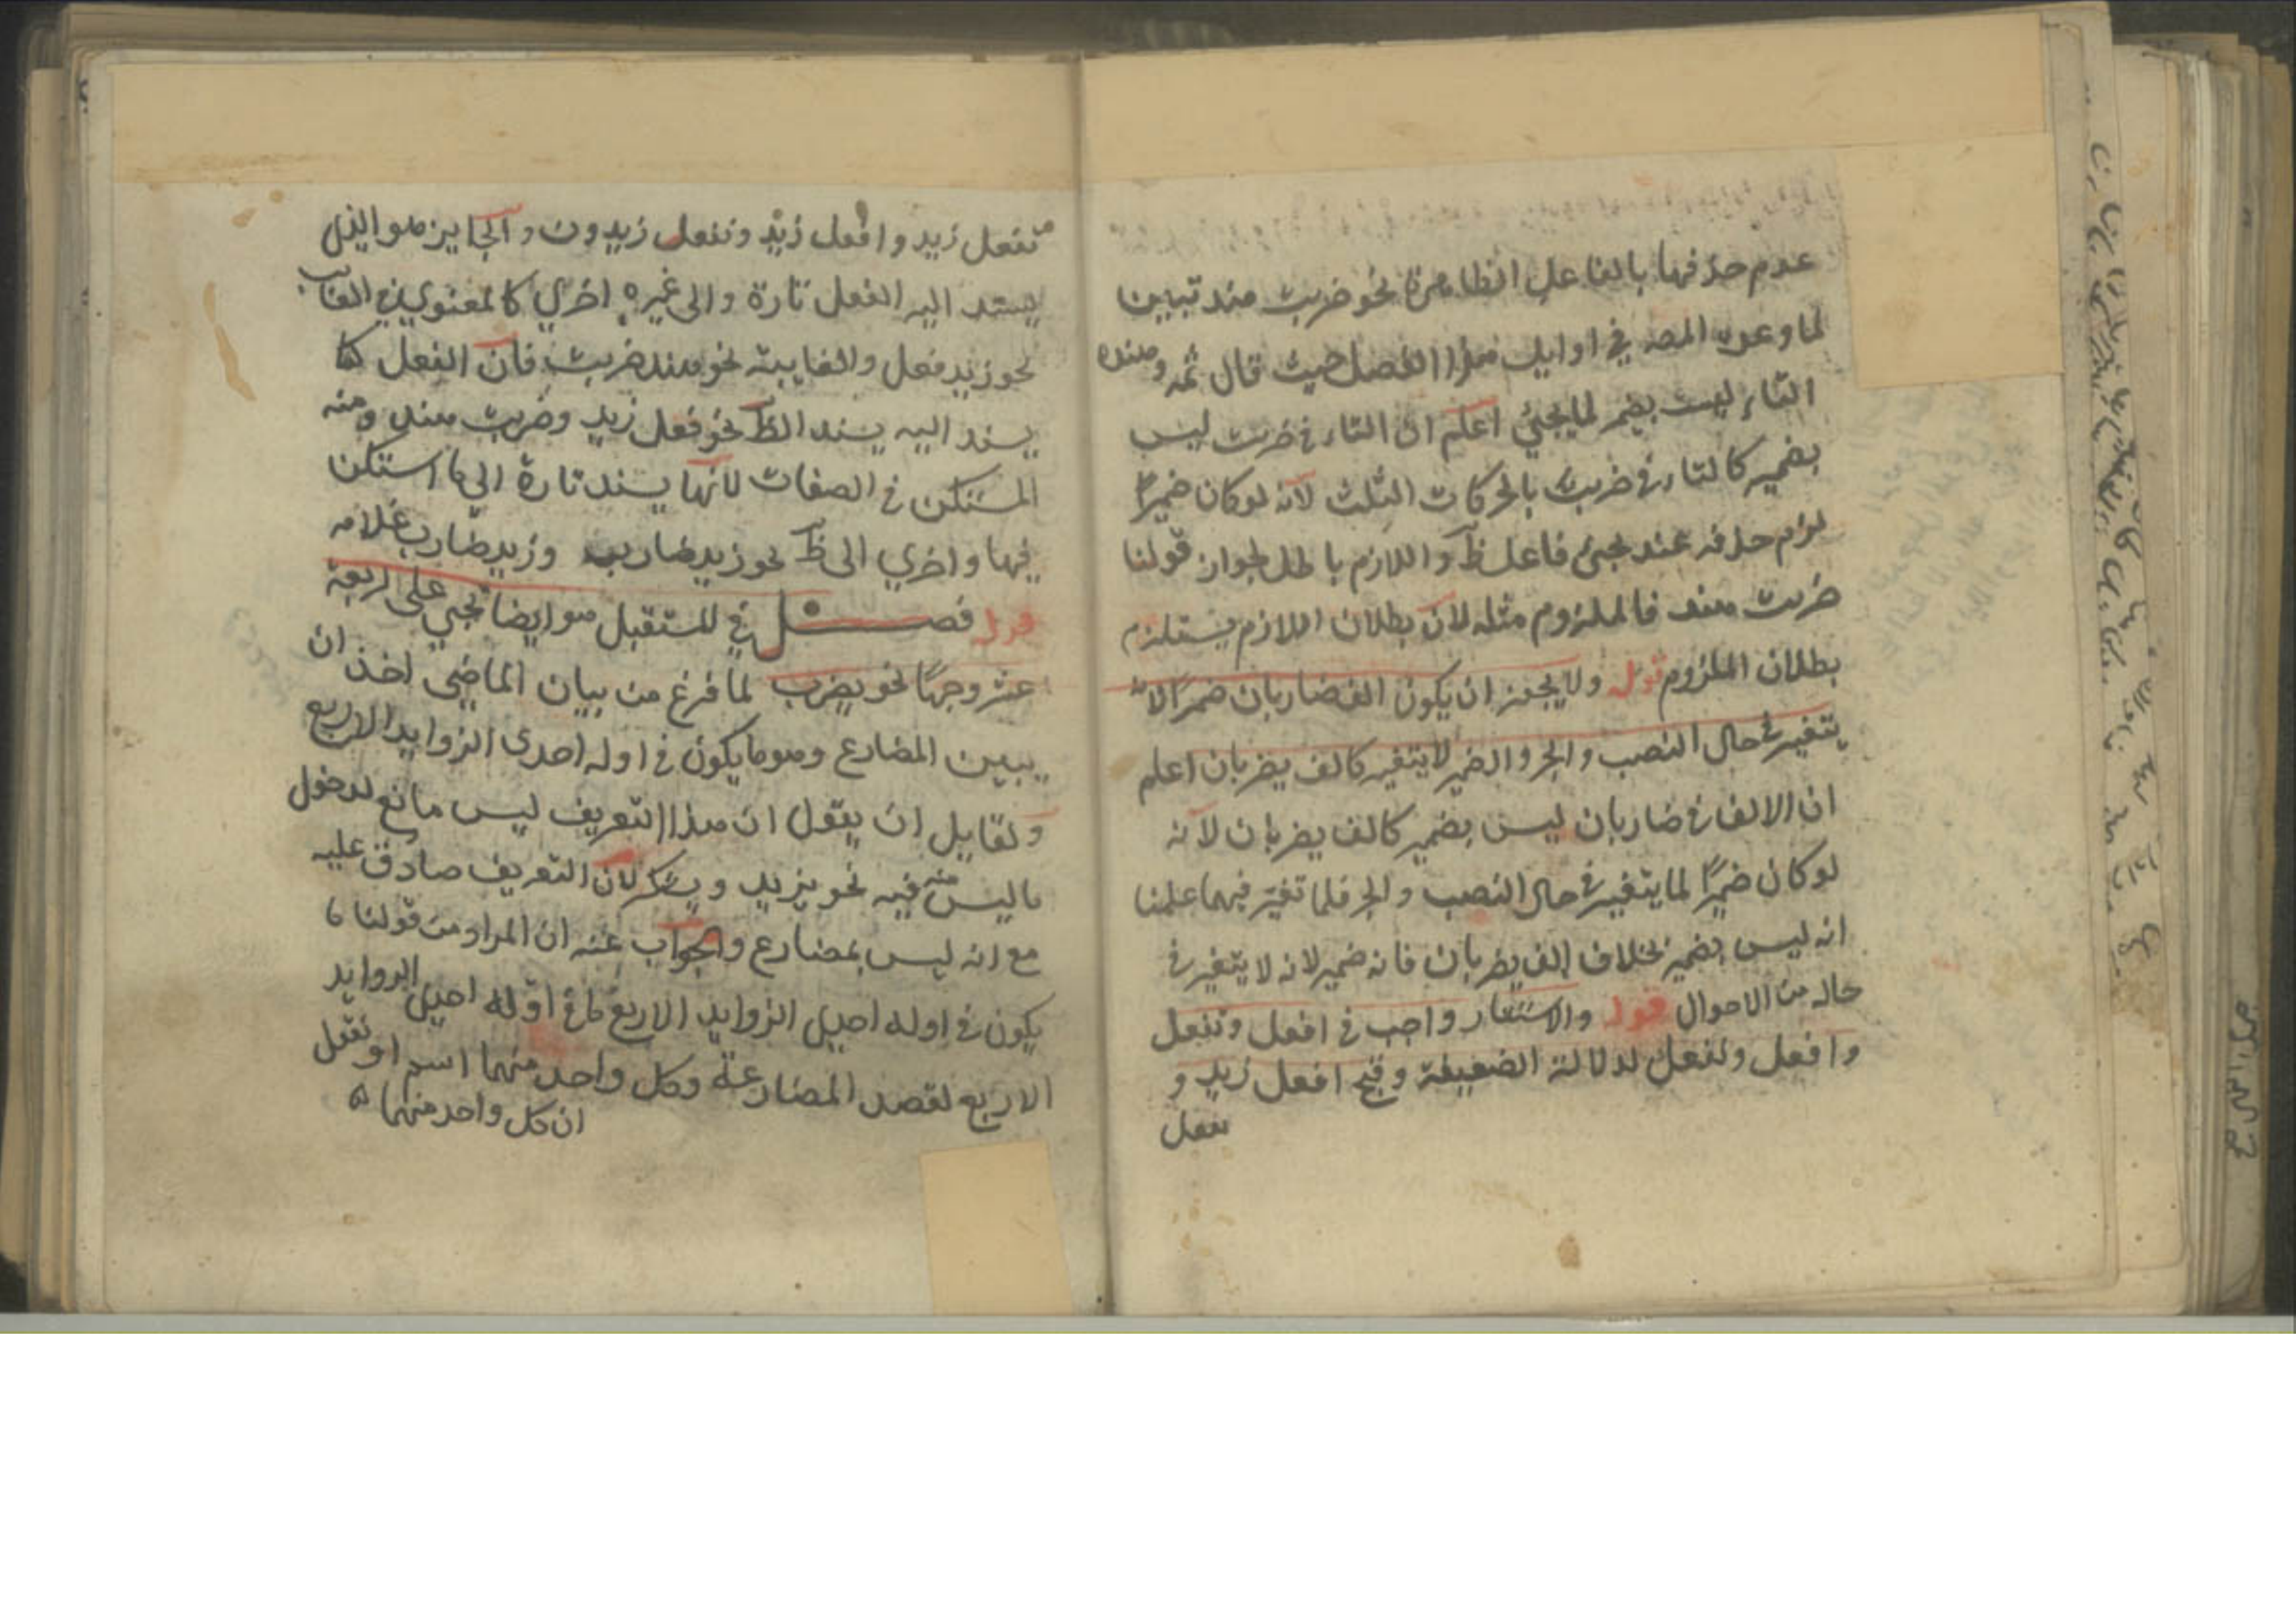 عدم حذفها بالفاعل الظاهرة نحو ضربت هند تبيين
لما وعده المصه في اوايل هذا الفصل حيث قال ثمه وهذه
التاء ليست بضمير لما يجئ اعلم ان التاء في ضربت ليس
بضمير كالتاء في ضربت بالحركات الثلث لانه لو كان ضميرًا
لزم حذفه عند مجئ فاعل ظ واللازم باطل لجواز قولنا
ضربت هند فالملزوم مثله لان بطلان اللازم يستلزم
بطلان الملزوم قوله ولا يجوز ان يكون الف ضاربان ضميرًا لانه
يتغير في حال النصب والجر والضمير لا يتغير كالف يضربان اعلم
ان الالف في ضاربان ليس بضمير كالف يضربان لانه
لو كان ضميرًا لما يتغير في حال النصب والجر فلما تغير فيهما علمنا
انه ليس بضمير بخلاف الف يضربان فانه ضمير لانه لا يتغير في
حاله من الاحوال قوله والاستتار واجب في افعل وتفعل
وافعل ونفعل لدلالة الضعيفة وقبح افعل زيد و
تفعل
تفعل زيد وافعل زيد ونفعل زيدون والجايز هو الذي
يستد اليه الفعل تارة والى غيره اخري كالمعنوي في الغايب
نحو زيد فعل والغايبة نحو هند ضربت فان الفعل كما
يسند اليه يسند الظ نحو فعل زيد وضربت هند ومنه
المستكن في الصفات لانها يسند تارة الي ما استكن
فيها واخري الى ظ نحو زيد ضارب وزيد ضارب غلامه
قوله فصل في المستقبل هو ايضا يجي على اربعة
عشر وجهًا نحو يضرب لما فرغ من بيان الماضي اخذ ان
يبين المضارع وهو ما يكون في اوله احدى الزوايد الاربع
ولقايل ان يقول ان هذا التعريف ليس مانع لدخول
ما ليس منه فيه نحو يزيد ويشكر لان التعريف صادق عليه
مع انه ليس بمضارع والجواب عنه ان المراد من قولنا ما
يكون في اوله احدي الزوايد الاربع ما في اوله احدي الزوايد
الاربع لقصد المضارعة وكل واحد منهما اسم او نقول
ان كل واحد منهما